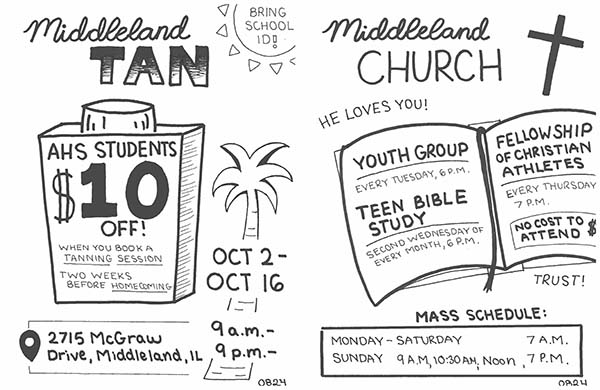 Middleland
TAN
BRING
SCHOOL
ID!
AHS STUDENTS
$10
OFF!
WHEN YOU BOOK A
TANNING SESSION
TWO WEEKS
BEFORE HOMECOMING
OCT 2-
OCT 16
9 a.m.-
9 p.m.-
2715 McGraw
Drive, Middleland, IL
OB24
Middleland
CHURCH
HE LOVES YOU!
YOUTH GROUP
EVERY TUESDAY, 6 P.M.
TEEN BIBLE
STUDY
SECOND WEDNESDAY OF
EVERY MONTH, 6 P.M.
FELLOWSHIP
OF CHRISTIAN
ATHLETES
EVERY THURSDAY
7 P.M.
NO COST TO
ATTEND $
TRUST!
MASS SCHEDULE:
MONDAY - SATURDAY 7 A.M.
SUNDAY 9 A.M, 10:30 AM, Noon, 7 P.M.
OB24